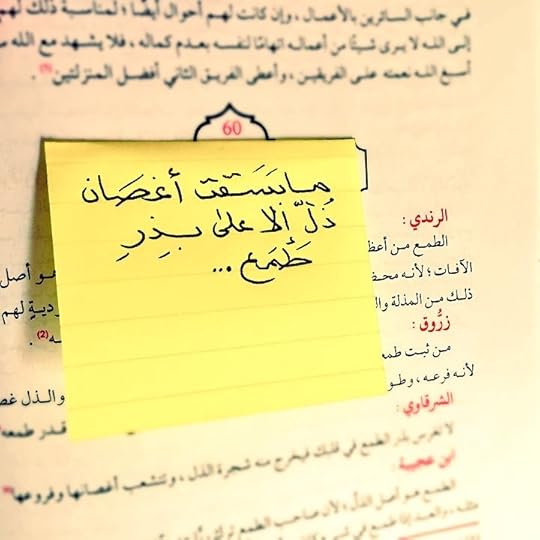 في جانب السائرين بالأعمال ، وإن كانت لهم أحوال أيضًا ؛ لمناسبة ذلك لهم
إلى الله لا يرى شيئًا من أعماله اتهامًا لنفسه بعدم كماله ، فلا يشهد مع الله
أسبغ الله نعمته على الفريقين ، وأعطى الفريق الثاني أفضل المنزلتين
60
ما بَسَقَت أغصَان
ذُلّ إلا على بِذرِ
طَمَع ...
الرندي :
الطمع من أعظ
الآفات ؛ لأنه محض
هو أصل
ذلك من المذلة وال
ودية لهم
زرُّوق :
من ثبت طمعه
(2)
لأنه فرعه ، وطو
والذل غص
الشرقاوي :
قدر طمعه
لا تغرس بذر الطمع في قلبك فيخرج منه شجرة الذل ، وتتشعب أغصانها وفروعها
ابن عجيبة :
الطمع هو أصل الذل ؛ لأن صاحب الطمع ترك